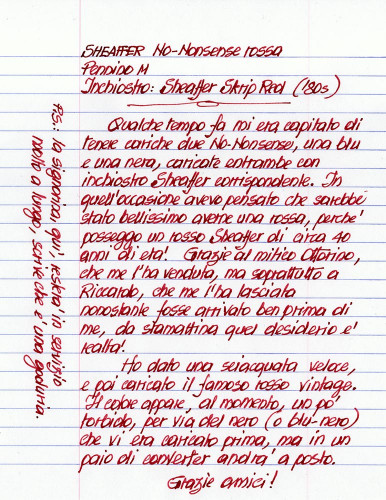 SHEAFFER No-Nonsense rossa
Pennino M
Inchiostro: Sheaffer Skrip Red ('80s)
Qualche tempo fa mi era capitato di
tenere cariche due No-Nonsense, una blu
e una nera, caricate entrambe con
inchiostro Sheaffer corrispondente. In
quell'occasione avevo pensato che sarebbe
stato bellissimo averne una rossa, perche'
posseggo un rosso Sheaffer di circa 40
anni di età! Grazie al mitico Ottorino,
che me l'ha venduta, ma soprattutto a
Riccardo, che me l'ha lasciata
nonostante fosse arrivato ben prima di
me, da stamattina quel desiderio e'
realtà!
Ho dato una sciacquata veloce,
e poi caricato il famoso rosso vintage.
Il colore appare, al momento, un po'
torbido, per via del nero (o blu-nero)
che vi era caricato prima, ma in un
paio di converter andrà a posto.
Grazie amici!
P.S.: la signorina, qui, resterà in servizio
molto a lungo, scrive che e' una goduria